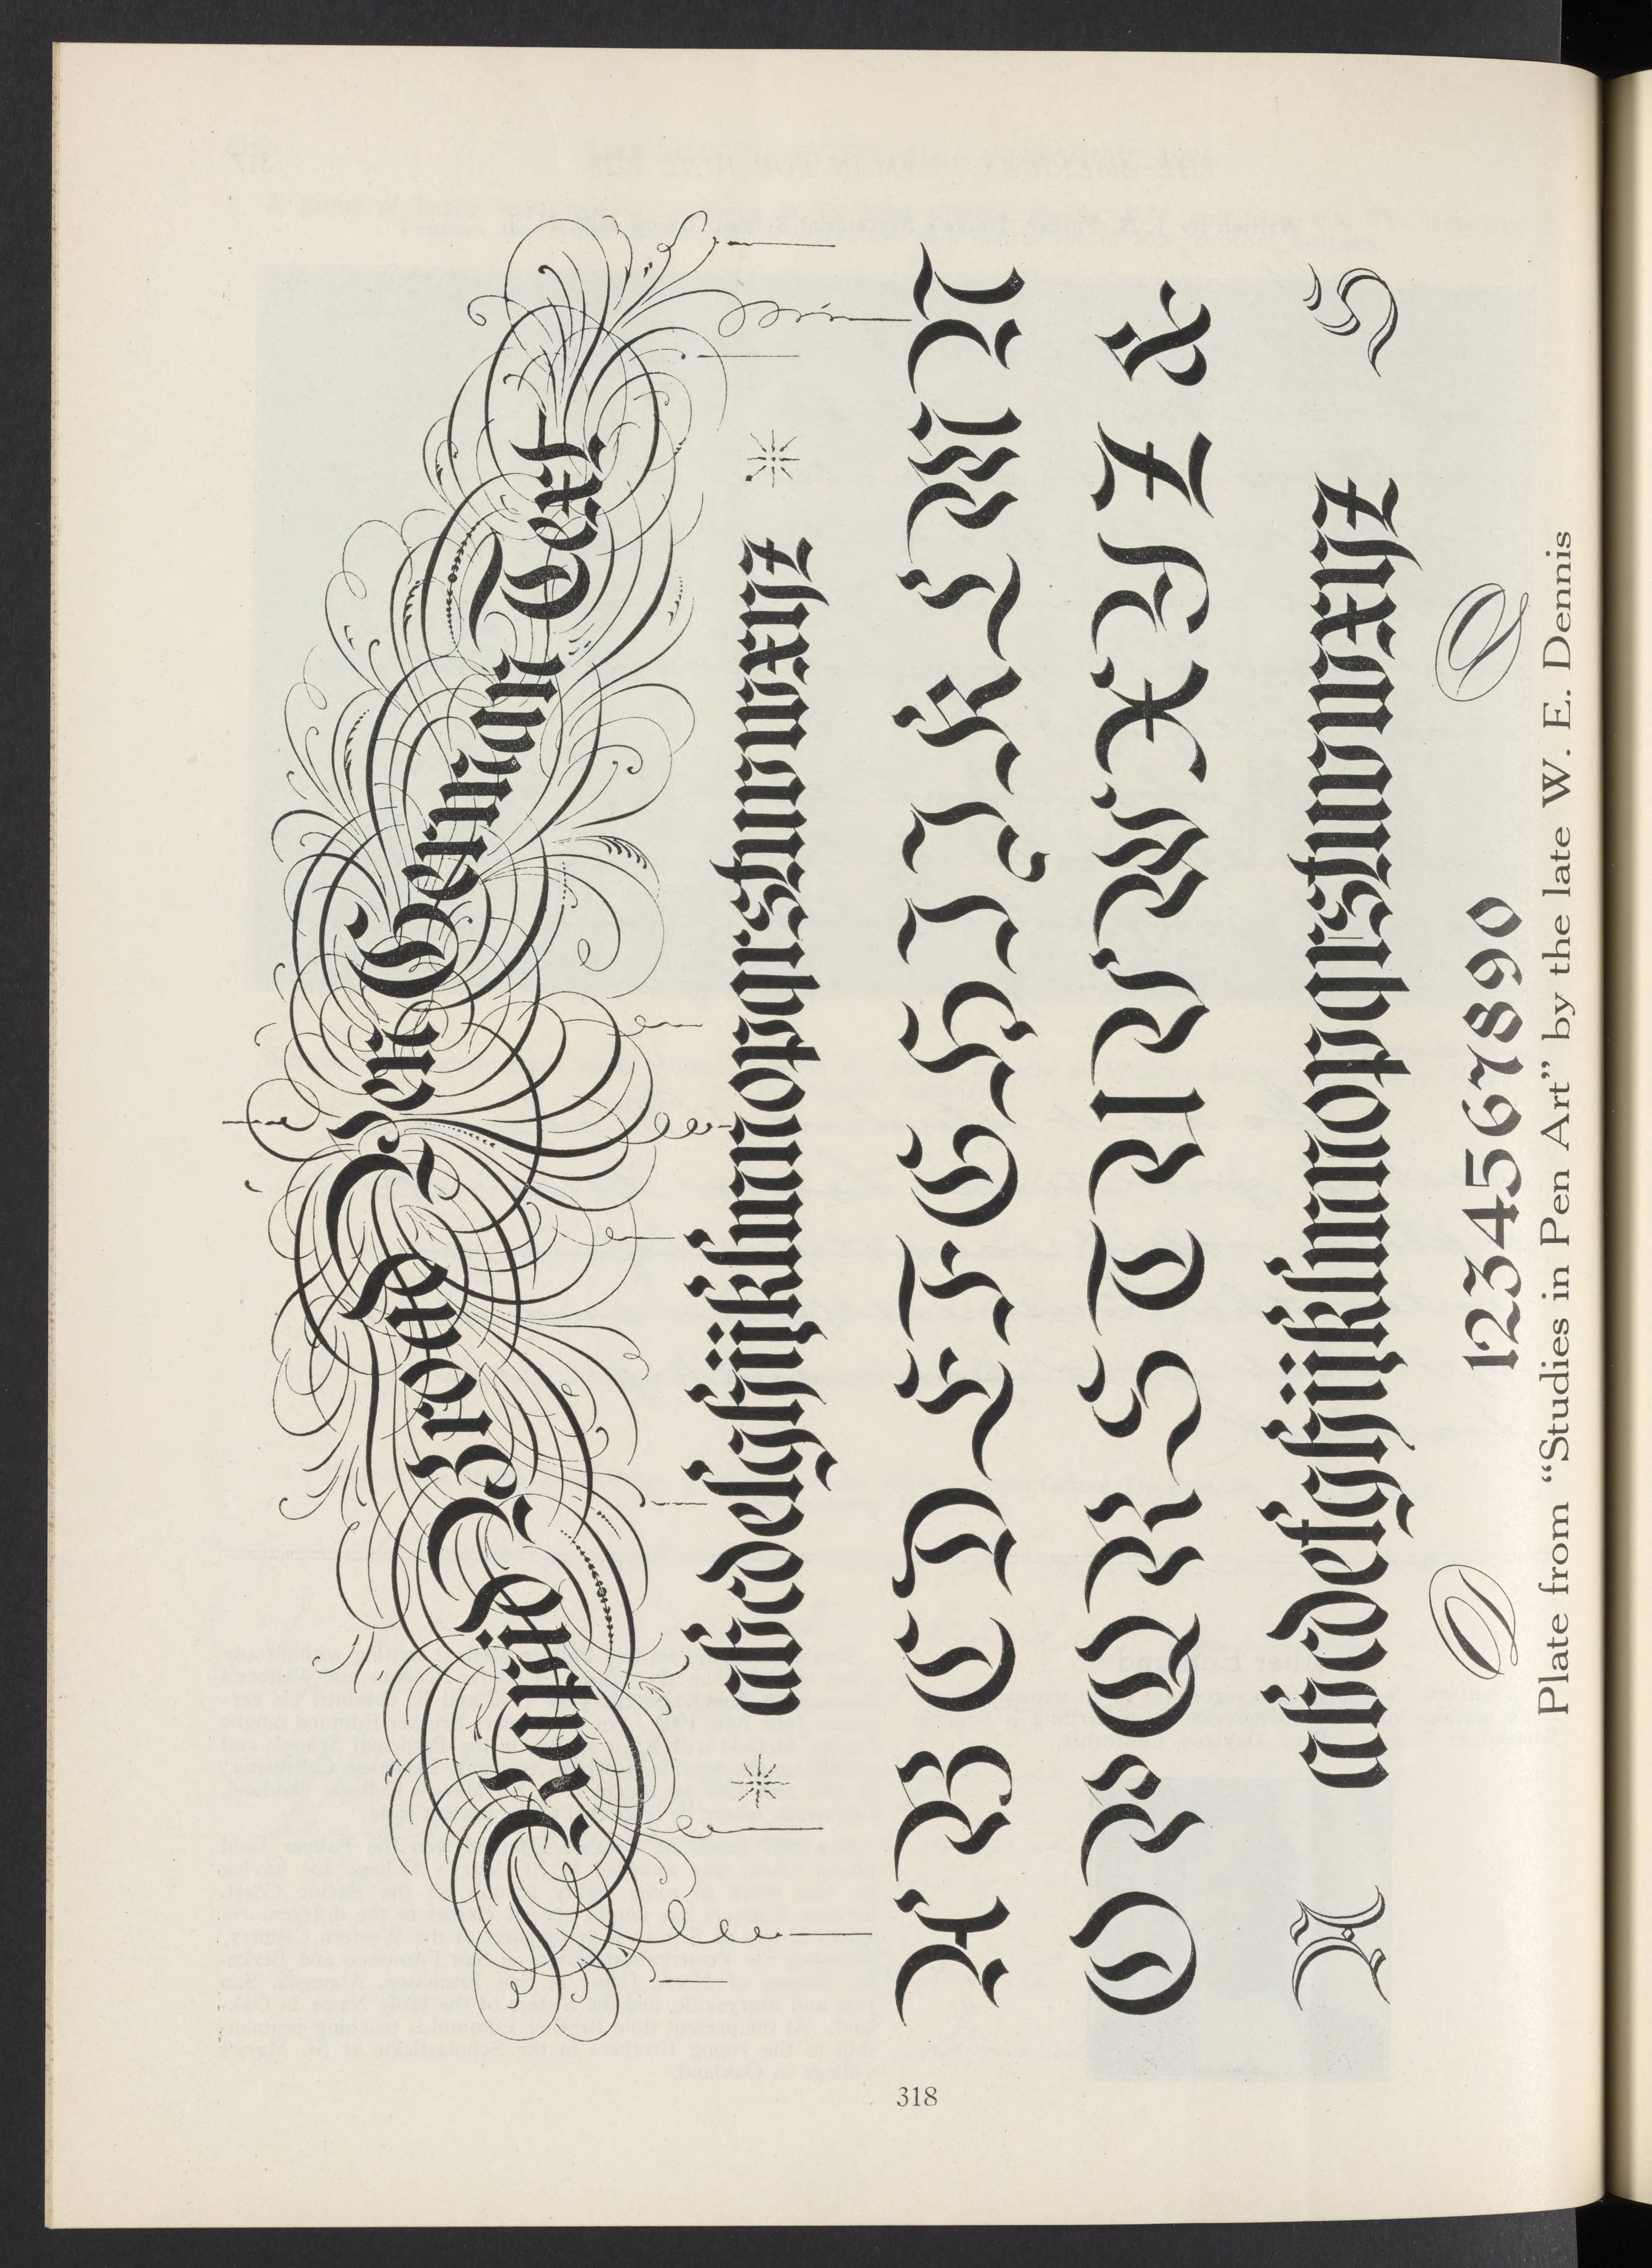 Rapid Broad Pen German Text
abcdefghijklmnopqrstuvwxyz
A B C D E F G H I J K L M N
O P Q R S T U V W X Y Z &
abcdefghijklmnopqrstuvwxyz
1234567890
Plate from “Studies in Pen Art” by the late W. E. Dennis
318